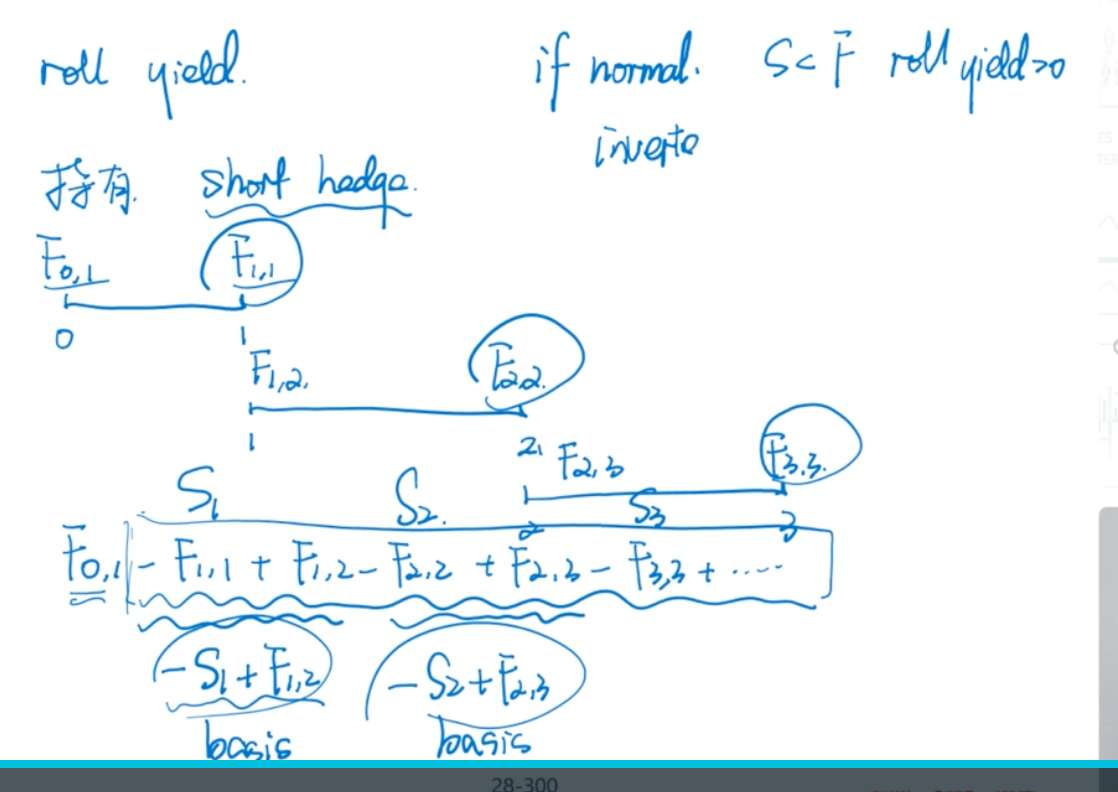 roll yield.
if normal. S<F roll yield>0
inverte
持有. short hedge.
F0,1 F1,1
0 1
F1,2. F2,2.
1 2,
F2,3 F3,3.
2 3
S1 S2. S3
F0,1 - F1,1 + F1,2 - F2,2 + F2,3 - F3,3 + .....
-S1 + F1,2 -S2 + F2,3
basis basis
28-300